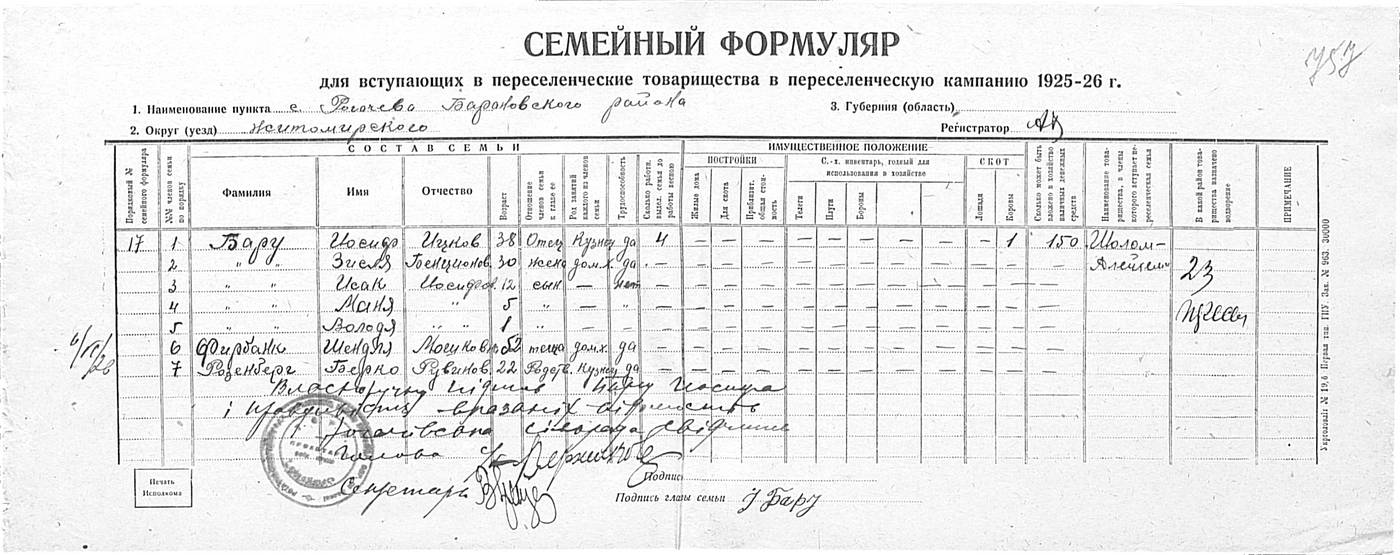 757
СЕМЕЙНЫЙ ФОРМУЛЯР
для вступающих в переселенческие товарищества в переселенческую кампанию 1925-26 г.
1. Наименование пункта с. Рогочева Барановского района 3. Губерния (область)
2. Округ (уезд) житомирского Регистратор
СОСТАВ СЕМЬИ ИМУЩЕСТВЕННОЕ ПОЛОЖЕНИЕ
ПОСТРОЙКИ С.-х. инвентарь, годный для использования в хозяйстве СКОТ
Порядковый № семейного формуляра №№ членов семьи по порядку Фамилия Имя Отчество Возраст Отношение членов семьи к главе ее Род занятий каждого из членов семьи Трудоспособность Сколько работн. выдел. семья до работы весною Жилые дома Для скота Приблизит. общая стоимость Телеги Плуги Бороны Лошади Коровы Сколько может быть вложено в хозяйство наличных денежных средств Наименование товарищества, в члены которого вступает переселенческая семья В какой район товарищества назначено водворение ПРИМЕЧАНИЕ
17 1 Бару Иосиф Ицков 38 Отец Кузнец да 4 — — — — — — — — — — 1 150 Шолом-
2 " " Зисля Бенционов. 30 жена дом.х. да — — — — — — — — — — — — — Алейхем 23
3 " " Исак Иосифов. 12 сын — нет — — — — — — — — — — — —
4 " " Маня " 5 " — — — — — — — — — — — — —
5 " " Володя " " 1 " — — — — — — — — — — — — —
6 Фирбанк Шендля Мосиковн. 52 теща дом.х. да — — — — — — — — — — — —
7 Розенберг Берко Рувинов. 22 Родств. Кузнец да — — — — — — — — — — — —
Власноручну підпис Бару Иосифа
і правдивість вказаніх відомостів
Рогачівська сільрада свідчит
Голова с/р
Секретарь
Печать Исполкома
Подпись
Подпись главы семьи И Бару
Укрголовлі № 19,6 Первая тип. ГПУ. Зак. № 963. 30000